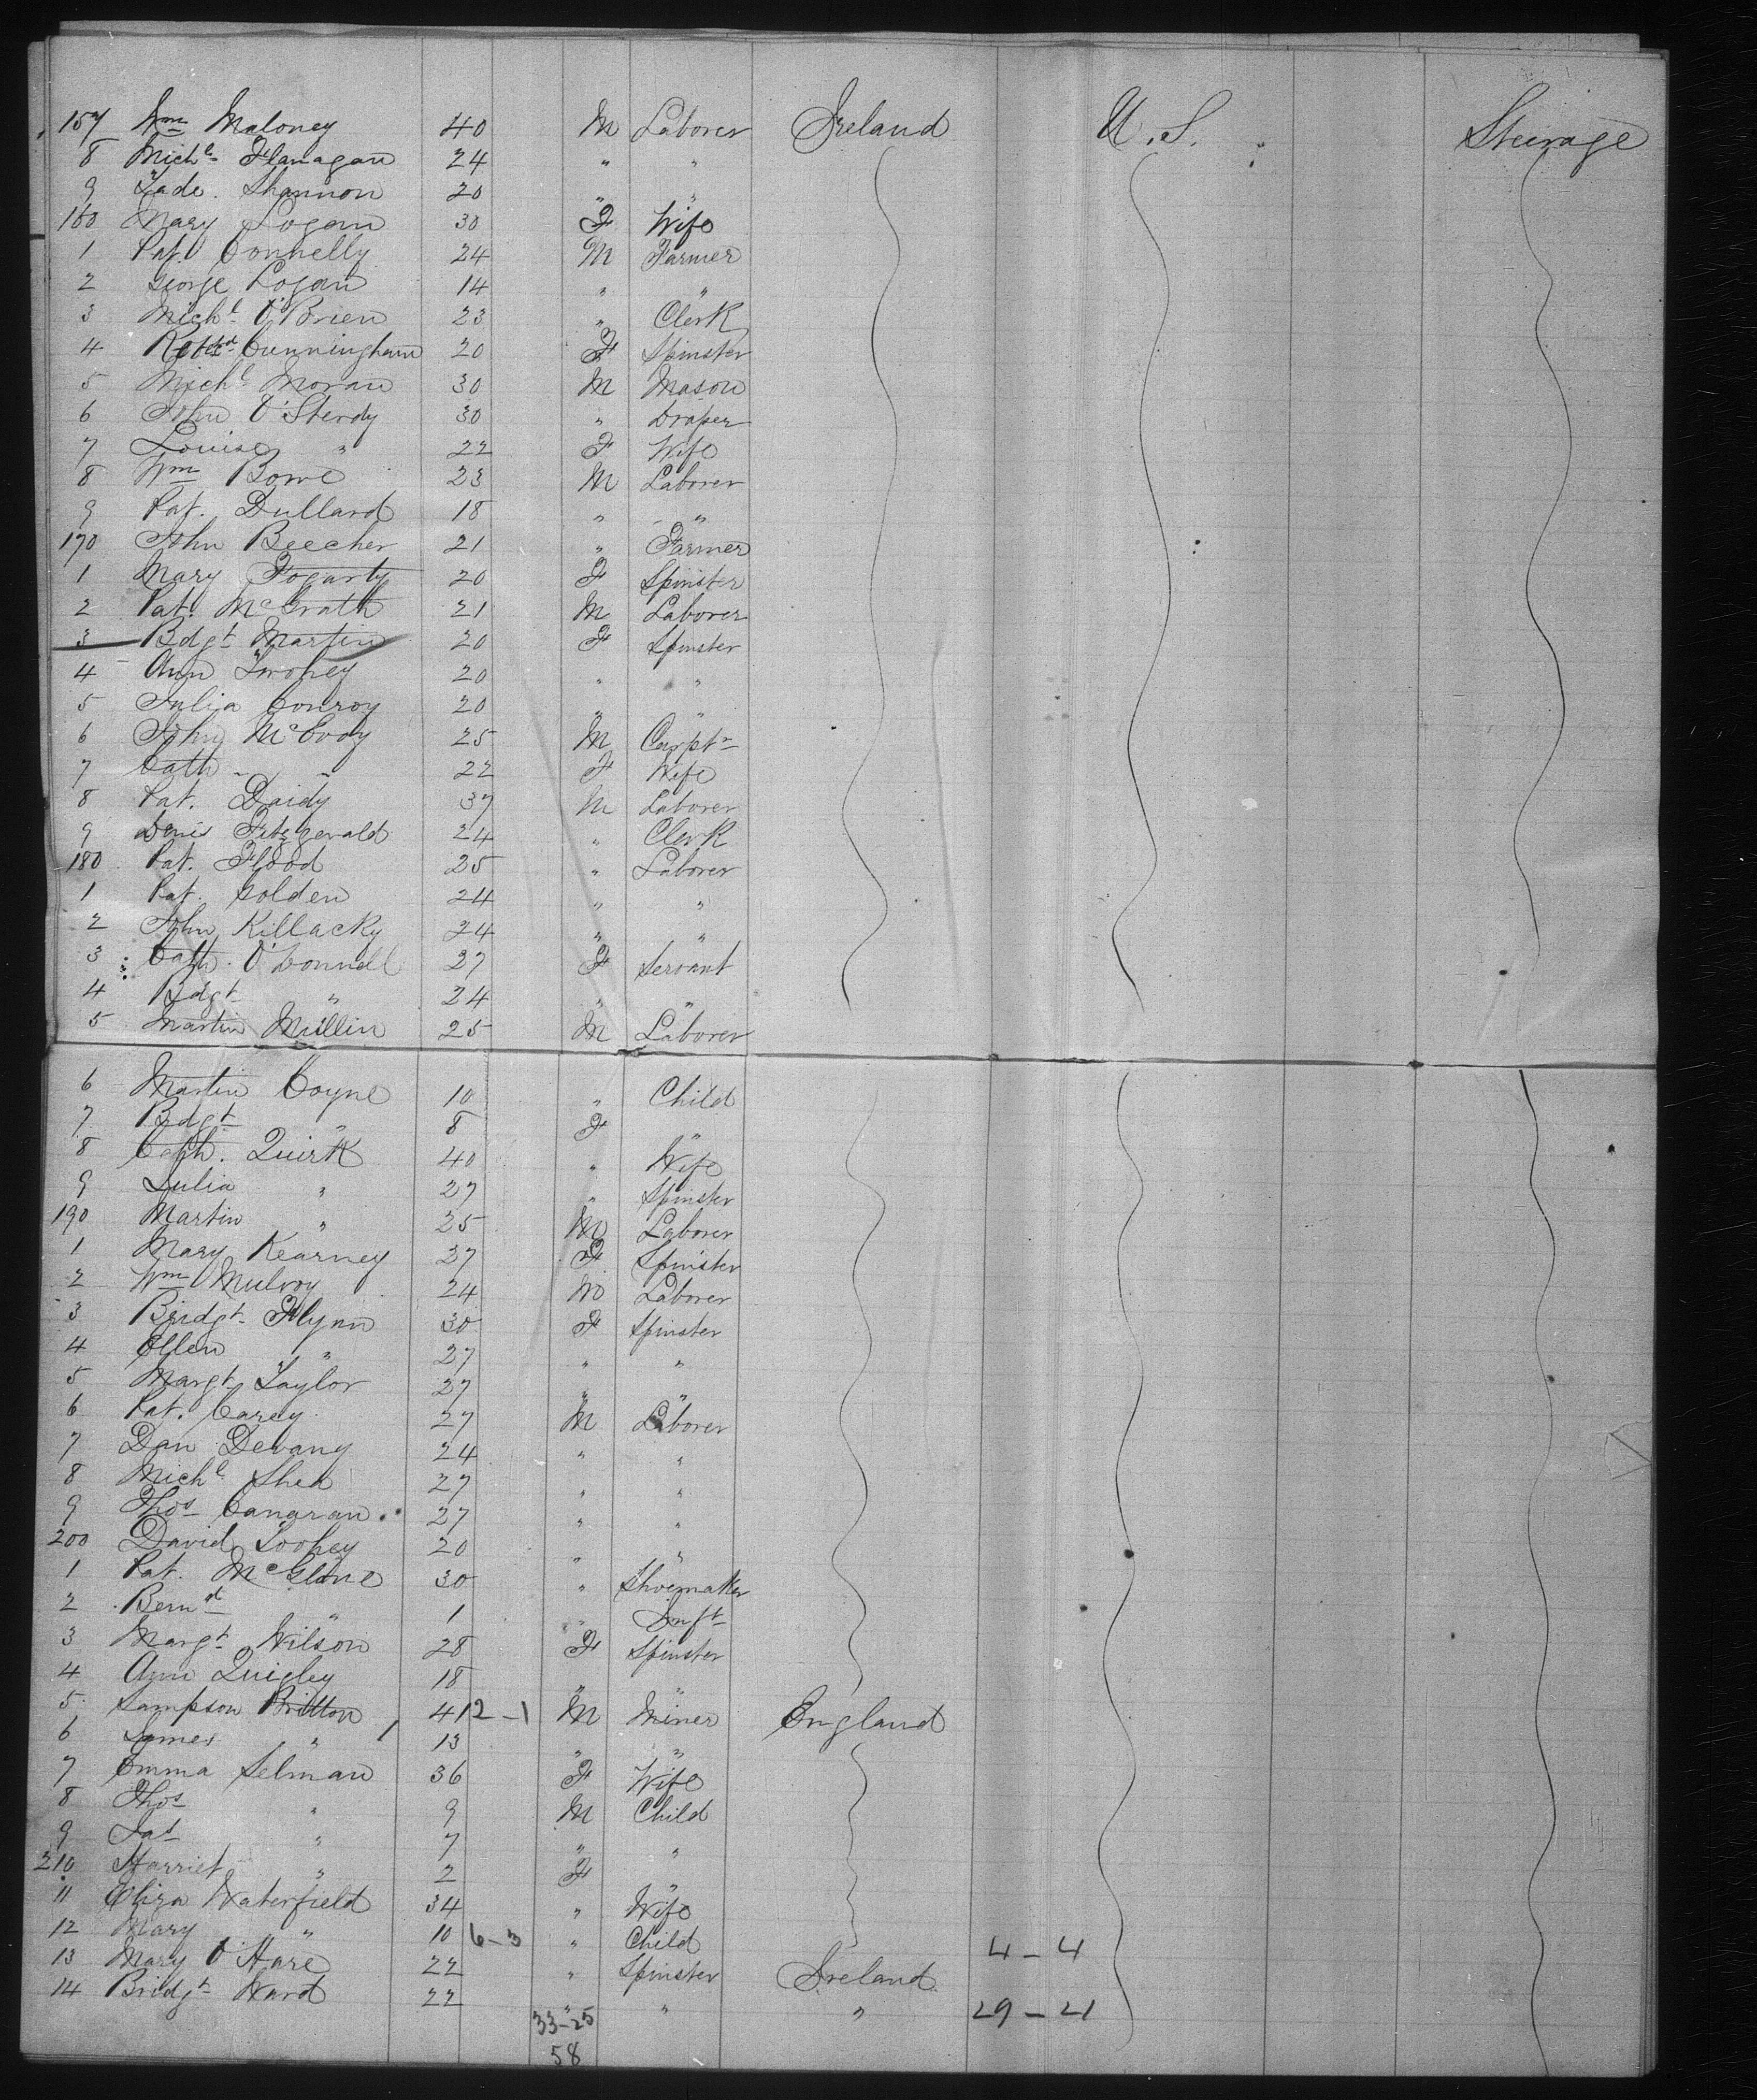 157 Wm Maloney 40 M Laborer Ireland U.S. Steerage
8 Michl Flanagan 24 " "
9 Tade. Shannon 20 " "
160 Mary Logan 30 F Wife
1 Pat. Connelly 24 M Farmer
2 George Logan 14 " "
3 Michl O'Brien 23 " Clerk
4 Cunningham 20 F Spinster
5 Michl Moran 30 M Mason
6 John O'Sterdy 30 " Draper
7 Louise " 22 F Wife
8 Wm Bowe 23 M Laborer
9 Pat. Dullard 18 " "
170 John Beecher 21 " Farmer
1 Mary Fogarty 20 F Spinster
2 Pat. McGrath 21 M Laborer
3 Bdgt Martin 20 F Spinster
4 Ann Twohey 20 " "
5 Julia Conroy 20 " "
6 John McEvoy 25 M Carptr
7 Cath " 22 F Wife
8 Pat. Daidy 37 M Laborer
9 Denis Fitzgerald 24 " Clerk
180 Pat. Flood 25 " Laborer
1 Pat. Golden 24 " "
2 John Killacky 24 " "
3 Cath. O'Donnell 27 F Servant
4 Bdgt " 24 " "
5 Martin Mullin 25 M Laborer
6 Martin Coyne 10 " Child
7 Bdgt " 8 F "
8 Cath. Quirk 40 " Wife
9 Julia " 27 " Spinster
190 Martin " 25 M Laborer
1 Mary Kearney 27 F Spinster
2 Wm Mulroy 24 M Laborer
3 Bridgt Flynn 30 F Spinster
4 Ellen " 27 " "
5 Margt Taylor 27 " "
6 Pat. Carey 27 M Laborer
7 Dan Devany 24 " "
8 Michl Shea 27 " "
9 Thos Canaran 27 " "
200 David Toohey 20 " "
1 Pat. McGlone 30 " Shoemaker
2 Bernd " 1 " Inft
3 Margt Wilson 28 F Spinster
4 Ann Quigley 18 " "
5 Sampson Britton 41 2-1 M Miner England
6 James " 13 " "
7 Emma Selman 36 F Wife
8 Thos " 9 M Child
9 Jas " 7 " "
210 Harriet " 2 F "
11 Eliza Waterfield 34 " Wife
12 Mary " 10 6-3 " Child 4-4
13 Mary O'Hare 22 " Spinster Ireland
14 Bridgt Ward 22 " " " 29-21
33-25
58